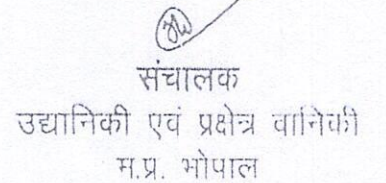 संचालक
उद्यानिकी एवं प्रक्षेत्र वानिकी
म.प्र. भोपाल